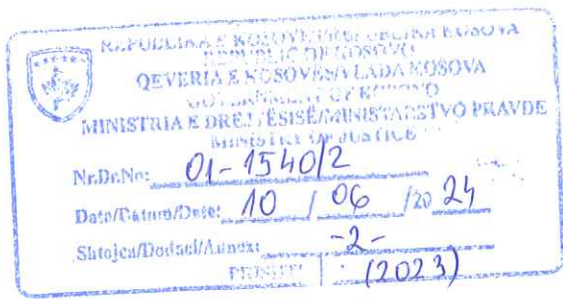 REPUBLIKA E KOSOVËS/REPUBLIKA KOSOVA
REPUBLIC OF KOSOVO
QEVERIA E KOSOVËS/VLADA KOSOVA
GOVERNMENT OF KOSOVO
MINISTRIA E DREJTËSISË/MINISTARSTVO PRAVDE
MINISTRY OF JUSTICE
Nr/Br/No: 01-1540/2
Data/Datum/Date: 10 / 06 /20 24
Shtojca/Dodaci/Annex: -2-
(2023)